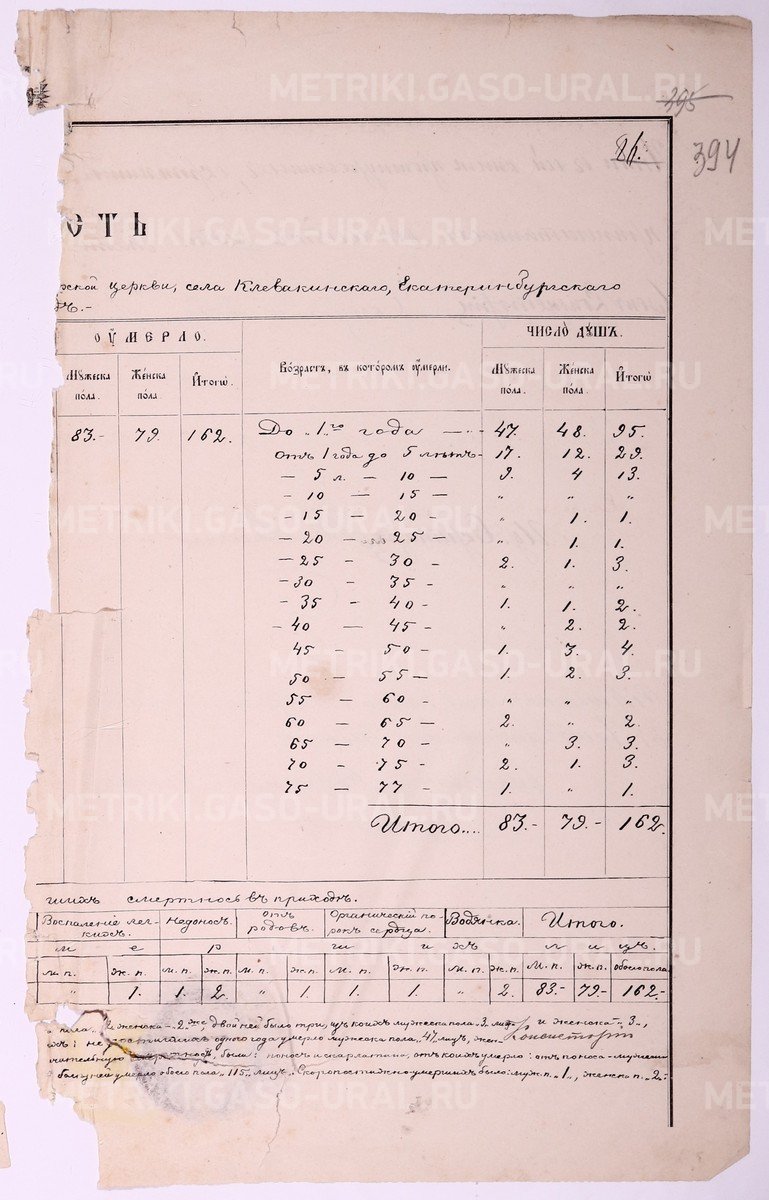 METRIKI.GASO-URAL.RU
395
86.
394
ОСТЬ
рской церкви, села Клевакинскаго, Екатеринбургскаго
дѣ.-
ОУМЕРЛО. ЧИСЛО ДУШЪ.
Мужеска пола. Женска пола. Итого. Возрастъ, въ которомъ умерли. Мужеска пола. Женска пола. Итого
83.- 79. 162. До "1го года — 47. 48. 95.
отъ 1 года до 5 лѣтъ- 17. 12. 29.
— 5 л. — 10 — 9. 4 13.
- 10 — 15 — " " "
- 15 — 20 - " 1. 1.
- 20 — 25 - " 1. 1.
- 25 - 30 - 2. 1. 3.
- 30 - 35 - " " "
- 35 - 40 - 1. 1. 2.
- 40 — 45 - " 2. 2.
45 - 50 - 1. 3. 4.
50 - 55 — 1. 2. 3.
55 — 60 - " " "
60 - 65 — 2. " 2.
65 — 70 - " 3. 3.
70 - 75 - 2. 1. 3.
75 — 77 - 1. " 1.
Итого.... 83.- 79.- 162.
шихъ смертность въ приходѣ.
Воспаленіе легкихъ. Недонос. Отъ родовъ. Органическій порокъ сердца. Водянка. Итого.
м е р ш и х ъ л и ц ъ.
м. п. ж. п. м. п. ж. п. м. п. ж. п. м. п. ж. п. м. п. ж. п. м. п. ж. п. обоего пола
" 1. 1. 2. " 1. 1. 1. 2. 83.- 79.- 162.-
пола женска - 2. же двойней было три, изъ коихъ мужеска пола 3. и женска - 3.,
не достигшихъ одного года умерло мужска пола "47 лицъ, жен.
чительную смертность, были: поносъ и скарлатина, отъ коихъ умерло: отъ поноса - мужескаго
болѣзней умерло обоего пола "115" лицъ. Скоропостижно умершихъ было: муж. п. "1", женск. п. "2.-